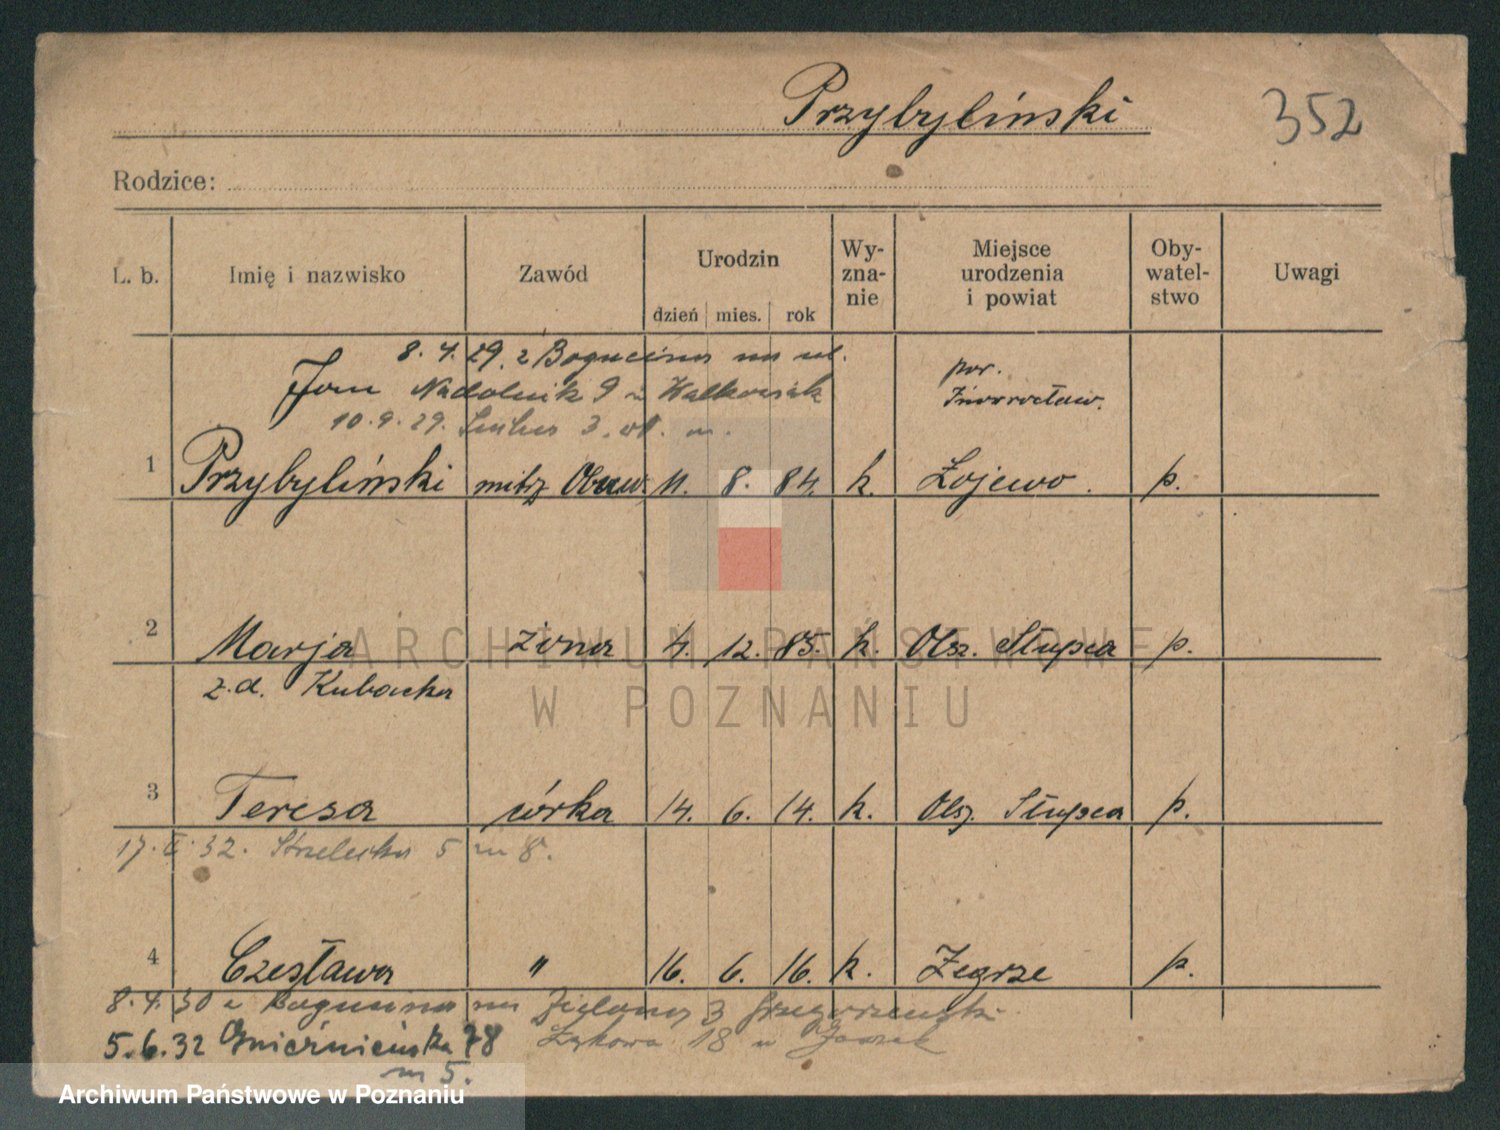 Przybyliński 352
Rodzice:
L. b. Imię i nazwisko Zawód Urodzin dzień mies. rok Wy-zna-nie Miejsce urodzenia i powiat Oby-watel-stwo Uwagi
8. 4. 29. z Bogucina na ul.
Jan Nadolnik 9 u Walkowiak
pow. Inowrocław.
10. 9. 29. 3. m.
1 Przybyliński mistrz Obuw. 11. 8. 84. k. Łojewo. p.
2 Marja żona 4. 12. 85. k. Olsz. Słupca p.
z.d. Kubacka
3 Teresa córka 14. 6. 14. k. Olsz. Słupca p.
17. 32. Strzelecka 5 m 8.
4 Czesława " 16. 6. 16. k. Zegrze p.
8. 4. 30 z Bogucina na Zieloną 3
5. 6. 32 Gnieźnieńska 78 Łąkowa 18 u
m 5.
ARCHIWUM PAŃSTWOWE
W POZNANIU
Archiwum Państwowe w Poznaniu